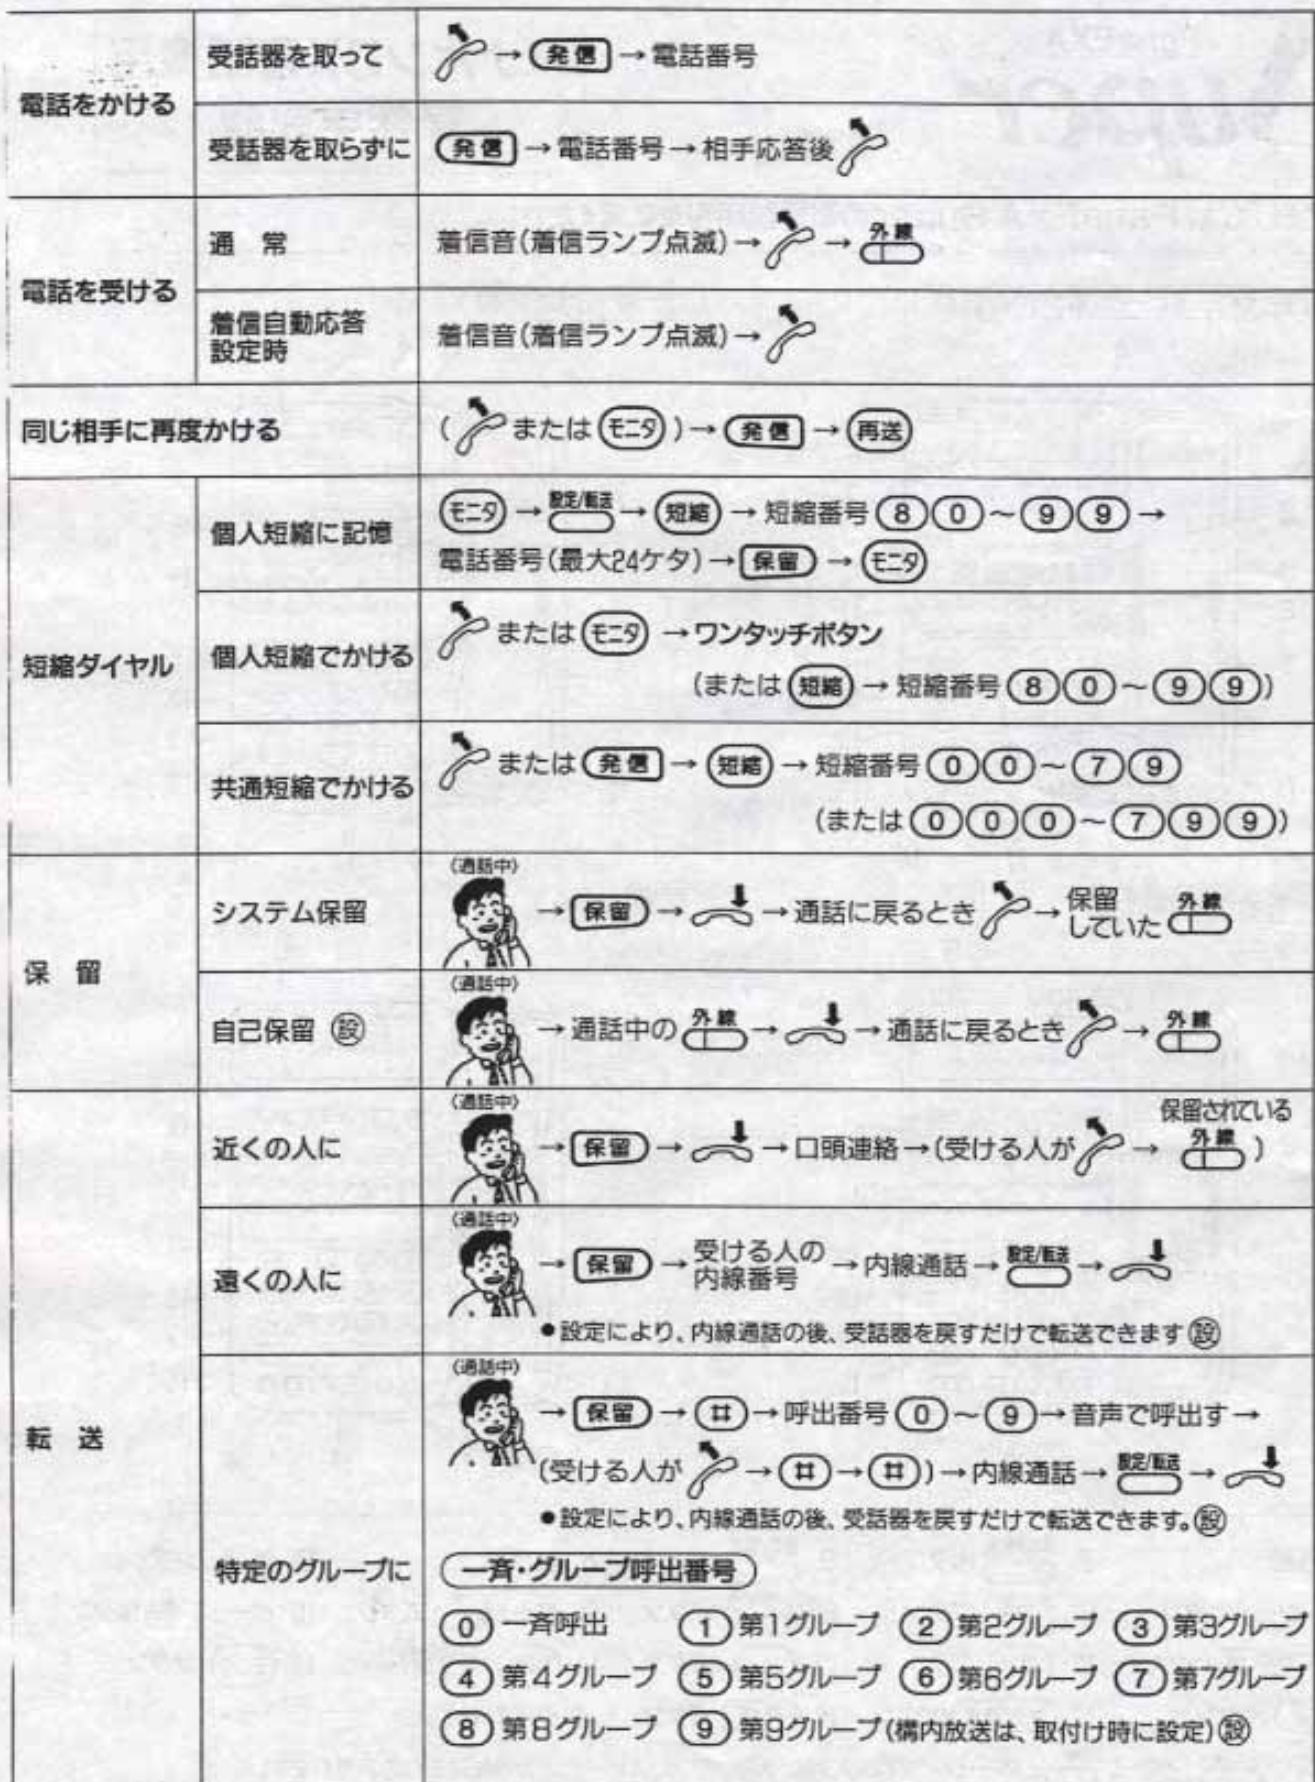 電話をかける
受話器を取って
→ 発信 → 電話番号
受話器を取らずに
発信 → 電話番号 → 相手応答後
電話を受ける
通 常
着信音(着信ランプ点滅) → → 外線
着信自動応答
設定時
着信音(着信ランプ点滅) →
同じ相手に再度かける
( または モニタ ) → 発信 → 再送
短縮ダイヤル
個人短縮に記憶
モニタ → 設定/転送 → 短縮 → 短縮番号 8 0 ～ 9 9 →
電話番号(最大24ケタ) → 保留 → モニタ
個人短縮でかける
または モニタ → ワンタッチボタン
(または 短縮 → 短縮番号 8 0 ～ 9 9)
共通短縮でかける
または 発信 → 短縮 → 短縮番号 0 0 ～ 7 9
(または 0 0 0 ～ 7 9 9)
保 留
システム保留
(通話中)
→ 保留 → → 通話に戻るとき → 保留していた 外線
自己保留 設
(通話中)
→ 通話中の 外線 → → 通話に戻るとき → 外線
転 送
近くの人に
(通話中)
→ 保留 → → 口頭連絡 → (受ける人が → 保留されている 外線 )
遠くの人に
(通話中)
→ 保留 → 受ける人の内線番号 → 内線通話 → 設定/転送 →
●設定により、内線通話の後、受話器を戻すだけで転送できます 設
特定のグループに
(通話中)
→ 保留 → # → 呼出番号 0 ～ 9 → 音声で呼出す →
(受ける人が → # → #) → 内線通話 → 設定/転送 →
●設定により、内線通話の後、受話器を戻すだけで転送できます。設
一斉・グループ呼出番号
0 一斉呼出 1 第1グループ 2 第2グループ 3 第3グループ
4 第4グループ 5 第5グループ 6 第6グループ 7 第7グループ
8 第8グループ 9 第9グループ(構内放送は、取付け時に設定) 設